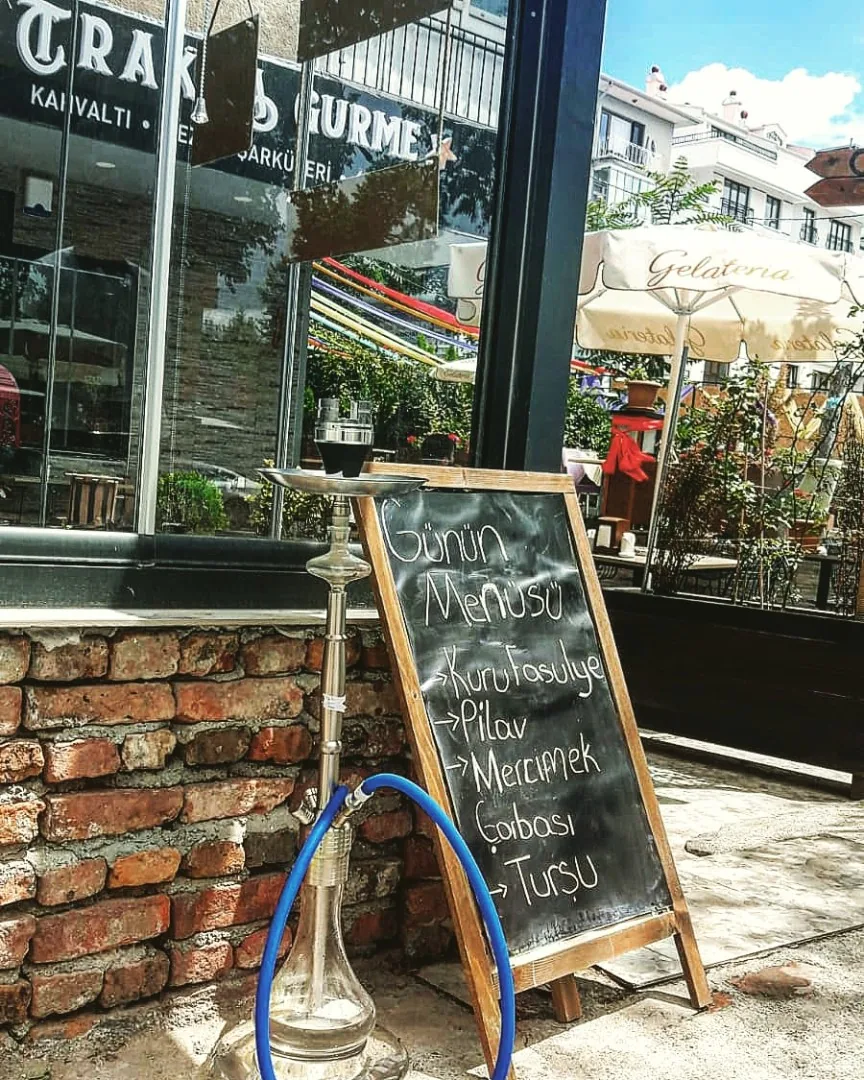 GURME
KAHVALTI •
ŞARKÜTERİ
Gelateria
Gelateria
Günün
Menüsü
→Kuru Fasulye
→Pilav
→Mercimek
Çorbası
→Turşu